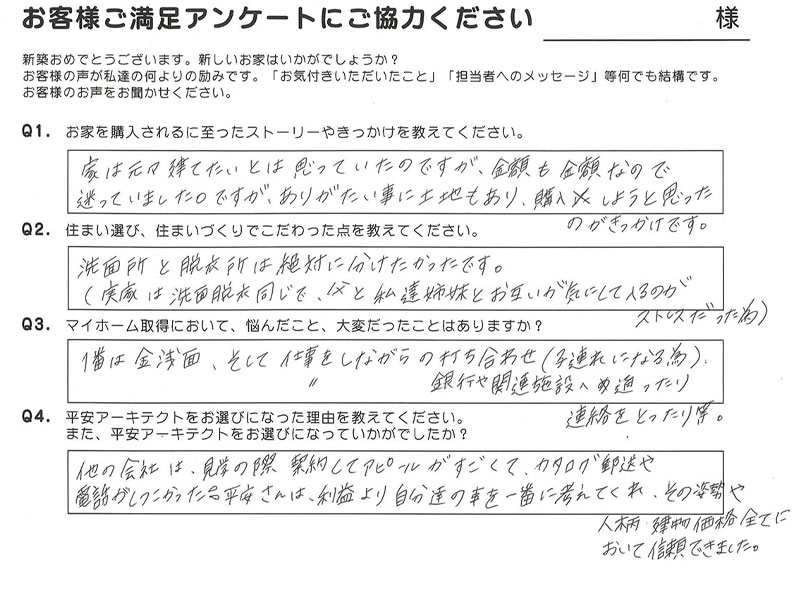 お客様ご満足アンケートにご協力ください 様
新築おめでとうございます。新しいお家はいかがでしょうか？
お客様の声が私達の何よりの励みです。「お気付きいただいたこと」「担当者へのメッセージ」等何でも結構です。
お客様のお声をお聞かせください。
Q1. お家を購入されるに至ったストーリーやきっかけを教えてください。
家は元々建てたいとは思っていたのですが、金額も金額なので
迷っていました。ですが、ありがたい事に土地もあり、購入しようと思った
のがきっかけです。
Q2. 住まい選び、住まいづくりでこだわった点を教えてください。
洗面所と脱衣所は絶対に分けたかったです。
(実家は洗面脱衣同じで、父と私達姉妹とお互いが気にして入るのが
ストレスだった為)
Q3. マイホーム取得において、悩んだこと、大変だったことはありますか？
1番は金銭面、そして仕事をしながらの打ち合わせ(子連れになる為)、
〃 銀行や関連施設への通ったり
連絡をとったり等。
Q4. 平安アーキテクトをお選びになった理由を教えてください。
また、平安アーキテクトをお選びになっていかがでしたか？
他の会社は、見学の際 契約してアピールがすごくて、カタログ郵送や
電話がしつこかった 平安さんは、利益より自分達の事を一番に考えてくれ、その姿勢や
人柄・建物価格全てに
おいて信頼できました。